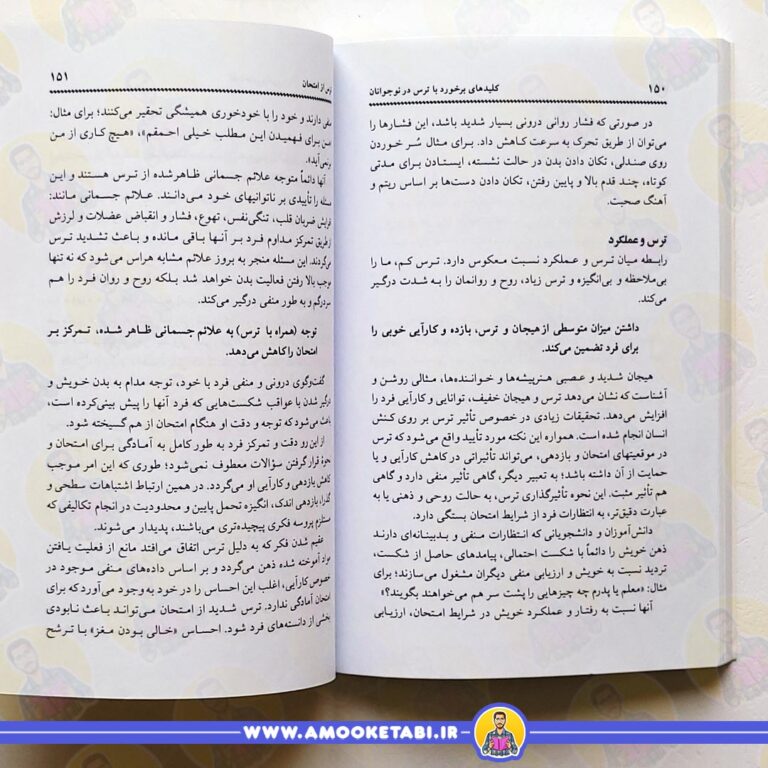 ۱۵۰
کلیدهای برخورد با ترس در نوجوانان
در صورتی که فشار روانی درونی بسیار شدید باشد، این فشارها را
می‌توان از طریق تحرک به سرعت کاهش داد. برای مثال سُر خوردن
روی صندلی، تکان دادن بدن در حالت نشسته، ایستادن برای مدتی
کوتاه، چند قدم بالا و پایین رفتن، تکان دادن دست‌ها بر اساس ریتم و
آهنگ صحبت.
ترس و عملکرد
رابطه میان ترس و عملکرد نسبت معکوس دارد. ترس کم، ما را
بی‌ملاحظه و بی‌انگیزه و ترس زیاد، روح و روانمان را به شدت درگیر
می‌کند.
داشتن میزان متوسطی از هیجان و ترس، بازده و کارآیی خوبی را
برای فرد تضمین می‌کند.
هیجان شدید و عصبی هنرپیشه‌ها و خواننده‌ها، مثالی روشن و
آشناست که نشان می‌دهد ترس و هیجان خفیف، توانایی و کارآیی فرد را
افزایش می‌دهد. تحقیقات زیادی در خصوص تأثیر ترس بر روی کنش
انسان انجام شده است. همواره این نکته مورد تأیید واقع می‌شود که ترس
در موقعیتهای امتحان و بازدهی، می‌تواند تأثیراتی در کاهش کارآیی و یا
حمایت از آن داشته باشد؛ به تعبیر دیگر، گاهی تأثیر منفی دارد و گاهی
هم تأثیر مثبت. این نحوه تأثیرگذاری ترس، به حالت روحی و ذهنی یا به
عبارت دقیق‌تر، به انتظارات فرد از شرایط امتحان بستگی دارد.
دانش‌آموزان و دانشجویانی که انتظارات منفی و بدبینانه‌ای دارند
ذهن خویش را دائماً با شکست احتمالی، پیامدهای حاصل از شکست،
تردید نسبت به خویش و ارزیابی منفی دیگران مشغول می‌سازند؛ برای
مثال: «معلم یا پدرم چه چیزهایی را پشت سر هم می‌خواهند بگویند؟»
آنها نسبت به رفتار و عملکرد خویش در شرایط امتحان، ارزیابی
ترس از امتحان
۱۵۱
منفی دارند و خود را با خودخوری همیشگی تحقیر می‌کنند؛ برای مثال:
«من برای فهمیدن این مطلب خیلی احمقم»، «هیچ کاری از من
برنمی‌آید».
آنها دائماً متوجه علائم جسمانی ظاهرشده از ترس هستند و این
مسئله را تأییدی بر ناتوانیهای خود می‌دانند. علائم جسمانی مانند:
افزایش ضربان قلب، تنگی‌نفس، تهوع، فشار و انقباض عضلات و لرزش
از طریق تمرکز مداوم فرد بر آنها باقی مانده و باعث تشدید ترس
می‌گردند. این مسئله منجر به بروز علائم مشابه هراس می‌شود که نه تنها
موجب بالا رفتن فعالیت بدن خواهد شد بلکه روح و روان فرد را هم
سردرگم و به طور منفی درگیر می‌کند.
توجه (همراه با ترس) به علائم جسمانی ظاهر شده، تمرکز بر
امتحان را کاهش می‌دهد.
گفت‌وگوی درونی و منفی فرد با خود، توجه مدام به بدن خویش و
درگیر شدن با عواقب شکست‌هایی که فرد آنها را پیش بینی‌کرده است،
باعث می‌شود که توجه و دقت او هنگام امتحان از هم گسیخته شود.
از این رو دقت و تمرکز فرد به طور کامل به آمادگی برای امتحان و
نحوهٔ قرار گرفتن سؤالات معطوف نمی‌شود؛ طوری که این امر موجب
کاهش بازدهی و کارآیی او می‌گردد. در همین ارتباط اشتباهات سطحی و
گذرا، بازدهی اندک، انگیزه تحمل پایین و محدودیت در انجام تکالیفی که
مستلزم پروسه فکری پیچیده‌تری می‌باشند، پدیدار می‌شوند.
عقیم شدن فکر که به دلیل ترس اتفاق می‌افتد مانع از فعلیت یافتن
مواد آموخته شده ذهن می‌گردد و بر اساس داده‌های منفی موجود در
خصوص کارآیی، اغلب این احساس را در خود به‌وجود می‌آورد که برای
امتحان آمادگی ندارد. ترس شدید از امتحان می‌تواند باعث نابودی
بخشی از دانسته‌های فرد شود. احساس «خالی بودن مغز» با ترشح
WWW.AMOOKETABI.IR